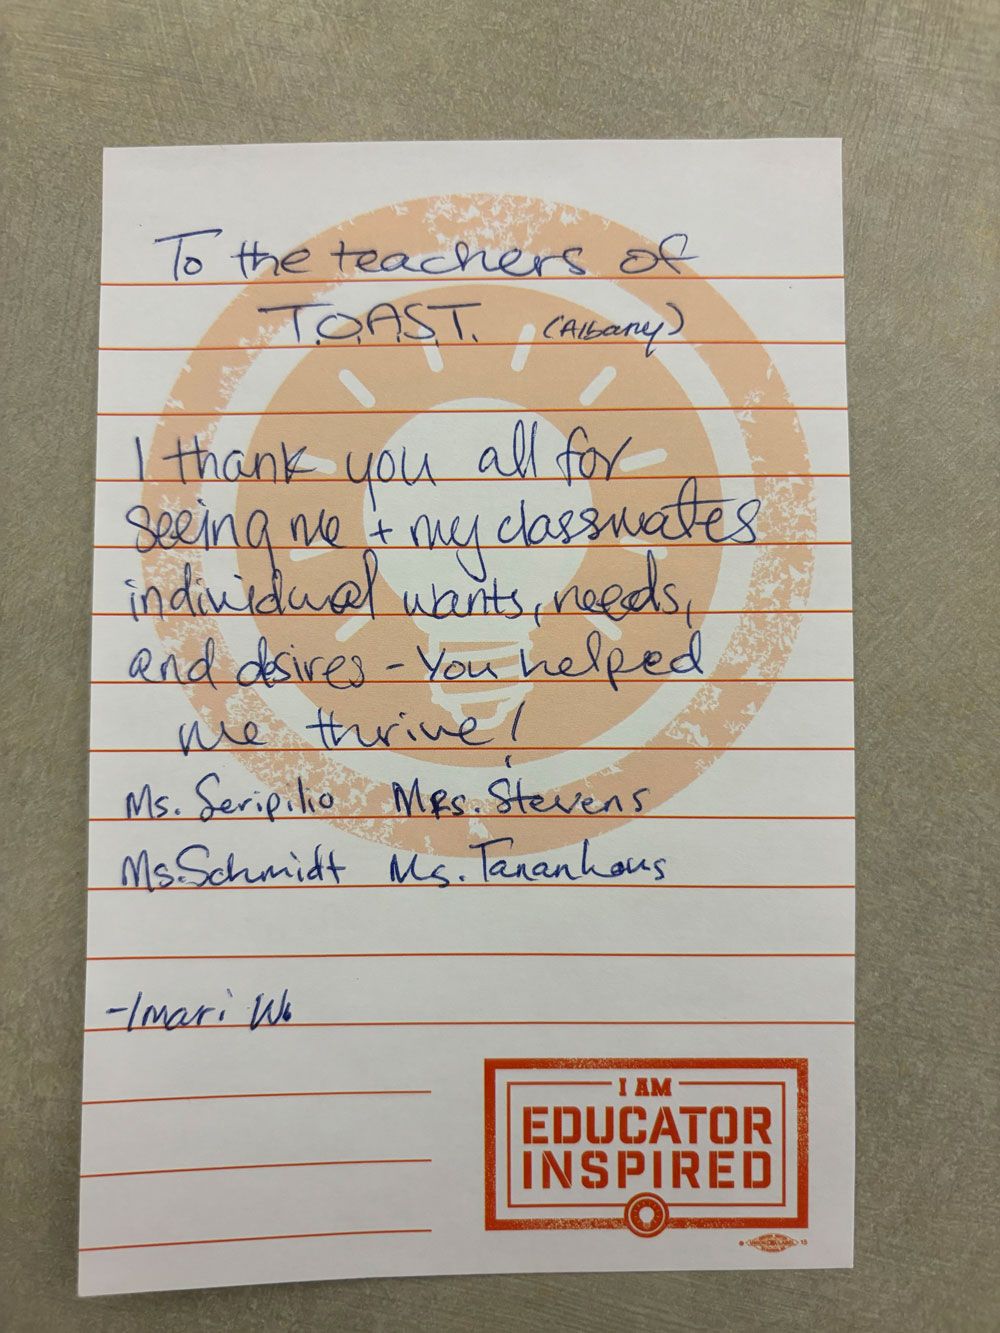 To the teachers of
T.O.A.S.T. (Albany)
I thank you all for
seeing me + my classmates
individual wants, needs,
and desires - You helped
me thrive!
Ms. Seripilio Mrs. Stevens
Ms. Schmidt Ms. Tanankous
-Imari W.
I AM
EDUCATOR
INSPIRED
15